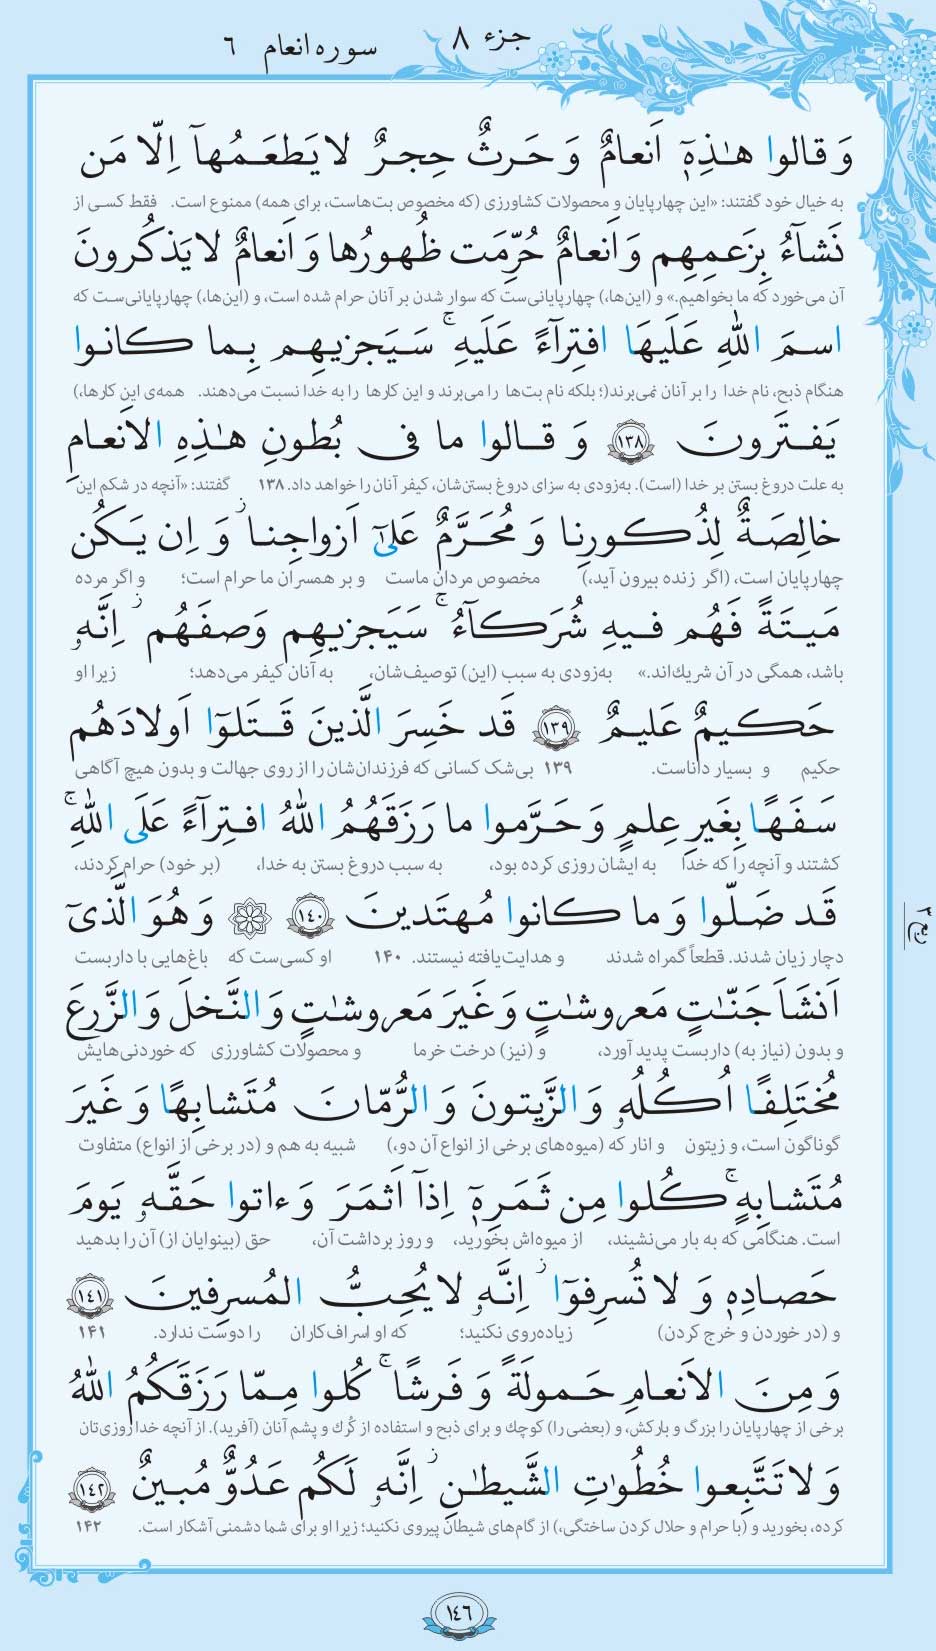 جزء ۸
سوره انعام ۶
وَ قالوا هٰذِهٖٓ اَنعامٌ وَ حَرثٌ حِجرٌ لا يَطعَمُهآ اِلّا مَن
به خیال خود گفتند: «این چهارپایان و محصولات کشاورزی (که مخصوص بت‌هاست، برای همه) ممنوع است. فقط کسی از
نَشآءُ بِزَعمِهِم وَ اَنعامٌ حُرِّمَت ظُهورُها وَ اَنعامٌ لا يَذكُرونَ
آن می‌خورد که ما بخواهیم.» و (این‌ها،) چهارپایانی‌ست که سوار شدن بر آنان حرام شده است، و (این‌ها،) چهارپایانی‌ست که
اسمَ اللهِ عَلَيهَا افتِرآءً عَلَيهِ ۚ سَيَجزيهِم بِما كانوا
هنگام ذبح، نام خدا را بر آنان نمی‌برند(؛ بلکه نام بت‌ها را می‌برند و این کارها را به خدا نسبت می‌دهند. همه‌ی این کارها،)
يَفتَرونَ ﴿١٣٨﴾ وَ قالوا ما فى بُطونِ هٰذِهِ الاَنعامِ
به علت دروغ بستن بر خدا (است). به‌زودی به سزای دروغ بستن‌شان، کیفر آنان را خواهد داد. ۱۳۸ گفتند: «آنچه در شکم این
خالِصَةٌ لِذُكورِنا وَ مُحَرَّمٌ عَلىٰٓ اَزواجِنا ۖ وَ اِن يَكُن
چهارپایان است، (اگر زنده بیرون آید،) مخصوص مردان ماست و بر همسران ما حرام است؛ و اگر مرده
مَيتَةً فَهُم فيهِ شُرَكآءُ ۚ سَيَجزيهِم وَصفَهُم ۚ اِنَّهٗ
باشد، همگی در آن شریك‌اند.» به‌زودی به سبب (این) توصیف‌شان، به آنان کیفر می‌دهد؛ زیرا او
حَكيمٌ عَليمٌ ﴿١٣٩﴾ قَد خَسِرَ الَّذينَ قَتَلوٓا اَولادَهُم
حکیم و بسیار داناست. ۱۳۹ بی‌شک کسانی که فرزندان‌شان را از روی جهالت و بدون هیچ آگاهی
سَفَهًا بِغَيرِ عِلمٍ وَ حَرَّموا ما رَزَقَهُمُ اللهُ افتِرآءً عَلَى اللهِ ۚ
کشتند و آنچه را که خدا به ایشان روزی کرده بود، به سبب دروغ بستن به خدا، (بر خود) حرام کردند،
قَد ضَلّوا وَ ما كانوا مُهتَدينَ ﴿١٤٠﴾ وَ هُوَ الَّذىٓ
دچار زیان شدند. قطعاً گمراه شدند و هدایت‌یافته نیستند. ۱۴۰ او کسی‌ست که باغ‌هایی با داربست
ربع ۳
اَنشَاَ جَنّٰتٍ مَعروشٰتٍ وَ غَيرَ مَعروشٰتٍ وَ النَّخلَ وَ الزَّرعَ
و بدون (نیاز به) داربست پدید آورد، و (نیز) درخت خرما و محصولات کشاورزی که خوردنی‌هایش
مُختَلِفًا اُكُلُهٗ وَ الزَّيتونَ وَ الرُّمّانَ مُتَشابِهًا وَ غَيرَ
گوناگون است، و زیتون و انار که (میوه‌های برخی از انواع آن دو،) شبیه به هم و (در برخی از انواع) متفاوت
مُتَشابِهٍ ۚ كُلوا مِن ثَمَرِهٖٓ اِذآ اَثمَرَ وَ ءاتوا حَقَّهٗ يَومَ
است. هنگامی که به بار می‌نشیند، از میوه‌اش بخورید، و روز برداشت آن، حق (بینوایان از) آن را بدهید
حَصادِهٖ وَ لا تُسرِفوٓا ۚ اِنَّهٗ لا يُحِبُّ المُسرِفينَ ﴿١٤١﴾
و (در خوردن و خرج کردن) زیاده‌روی نکنید؛ که او اسراف‌کاران را دوست ندارد. ۱۴۱
وَ مِنَ الاَنعامِ حَمولَةً وَ فَرشًا ۚ كُلوا مِمّا رَزَقَكُمُ اللهُ
برخی از چهارپایان را بزرگ و بارکش، و (بعضی را) کوچك و برای ذبح و استفاده از کُرك و پشم آنان (آفرید). از آنچه خدا روزی‌تان
وَ لا تَتَّبِعوا خُطُوٰتِ الشَّيطٰنِ ۚ اِنَّهٗ لَكُم عَدُوٌّ مُبينٌ ﴿١٤٢﴾
کرده، بخورید و (با حرام و حلال کردن ساختگی،) از گام‌های شیطان پیروی نکنید؛ زیرا او برای شما دشمنی آشکار است. ۱۴۲
١٤٦